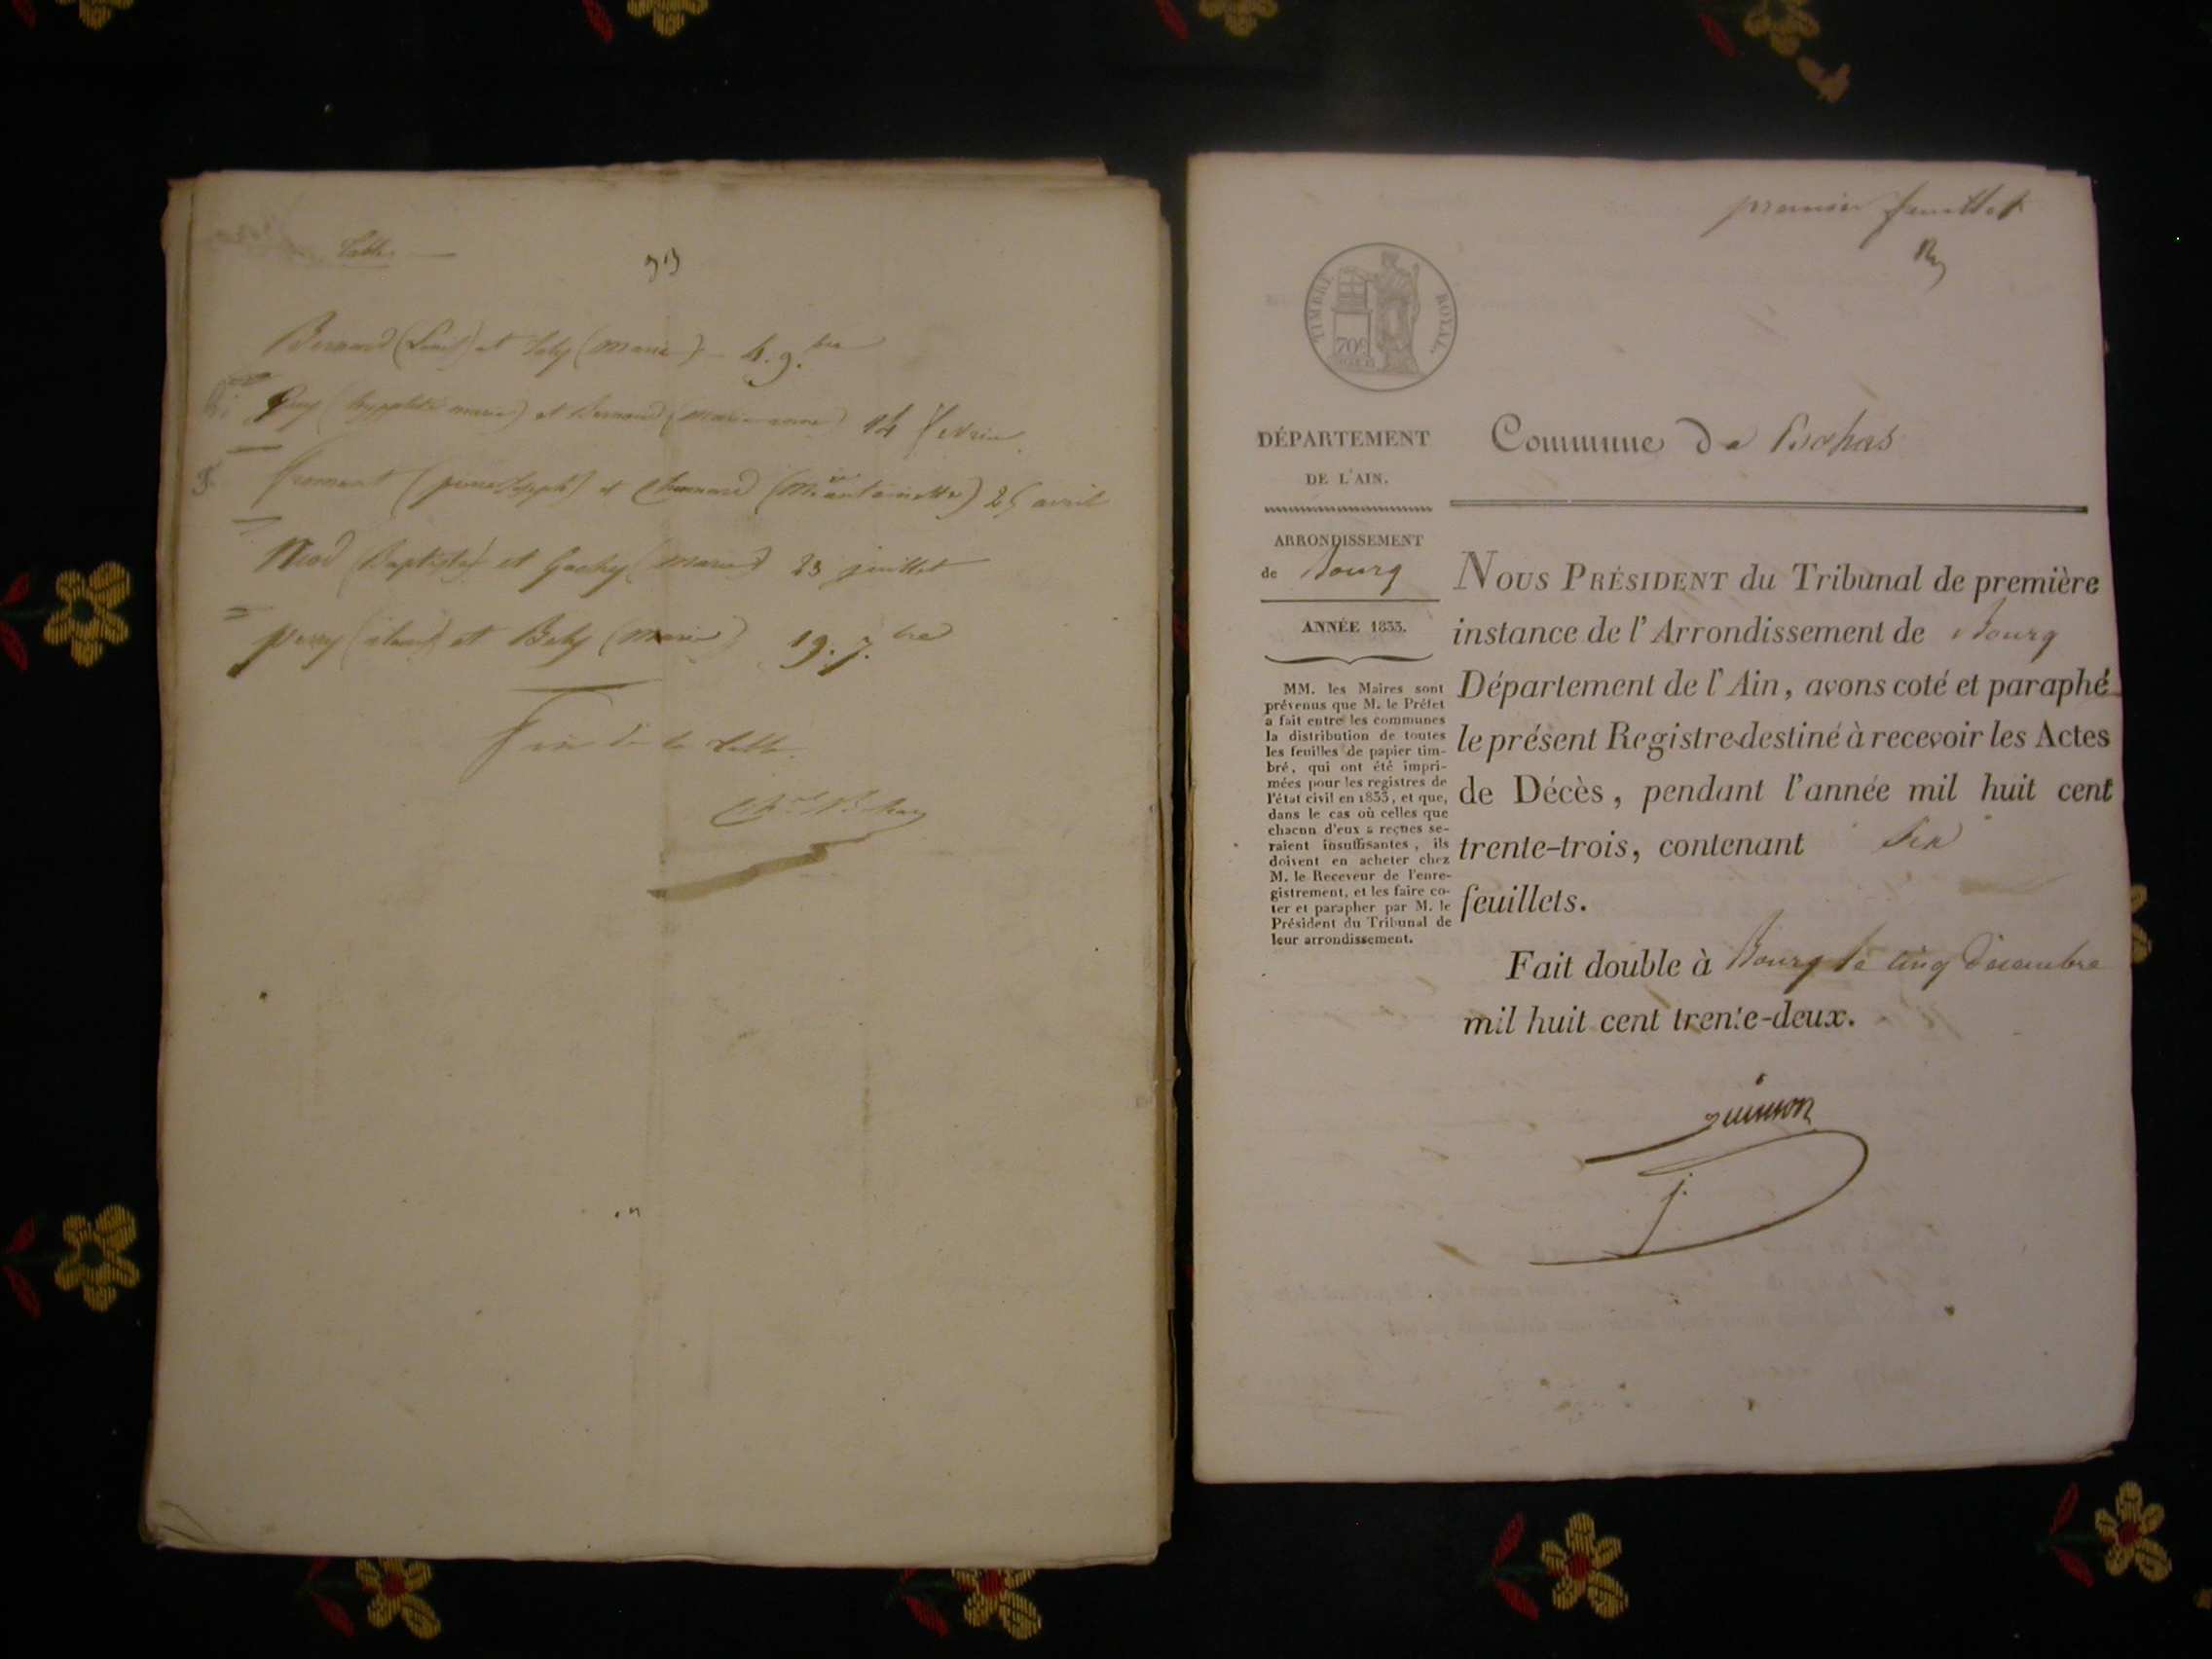 Table
Bernard (Louis) et (Marie) 4. 9.bre
(hyppolite marie) et Bernard (Marie-anne) 14 fevrier
froment (pierre Joseph) et (Mie antoinette) 25 avril
Niod (Baptiste) et Gachy (Marie) 23 juillet
perry et Bely (Marie) 19. 7.bre
Fin de la Table
premier feuillet
TIMBRE ROYAL.
70c
Commune de Bohas
DÉPARTEMENT
DE L'AIN.
ARRONDISSEMENT
de Bourg
ANNÉE 1833.
MM. les Maires sont
prévenus que M. le Préfet
a fait entre les communes
la distribution de toutes
les feuilles de papier tim-
bré, qui ont été impri-
mées pour les registres de
l'état civil en 1833, et que,
dans le cas où celles que
chacun d'eux a reçues se-
raient insuffisantes, ils
doivent en acheter chez
M. le Receveur de l'enre-
gistrement, et les faire co-
ter et parapher par M. le
Président du Tribunal de
leur arrondissement.
NOUS PRÉSIDENT du Tribunal de première
instance de l'Arrondissement de Bourg
Département de l'Ain, avons coté et paraphé
le présent Registre destiné à recevoir les Actes
de Décès, pendant l'année mil huit cent
trente-trois, contenant six
feuillets.
Fait double à Bourg le cinq Décembre
mil huit cent trente-deux.